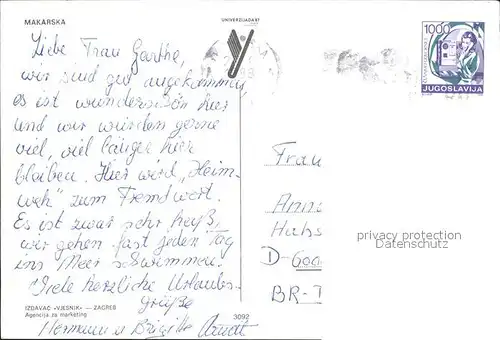 MAKARSKA
UNIVERZIJADA 87
Liebe Frau Garthe,
wir sind gut angekommen,
es ist wunderschön hier
und wir würden gerne
viel, viel länger hier
bleiben. Hier wird „Heim-
weh" zum Fremdwort.
Es ist zwar sehr heiß,
wir gehen fast jeden Tag
ins Meer schwimmen.
Viele herzliche Urlaubs-
grüße
Hermann u Brigitte Arndt
IZDAVAČ «VJESNIK» — ZAGREB
Agencija za marketing
3092
1000
JUGOSLAVIJA
Frau
Anna
Hubs
D-600
BR-D
privacy protection
Datenschutz